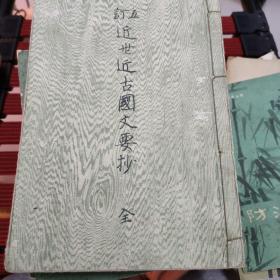 五訂 近世近古國文要抄 全
防